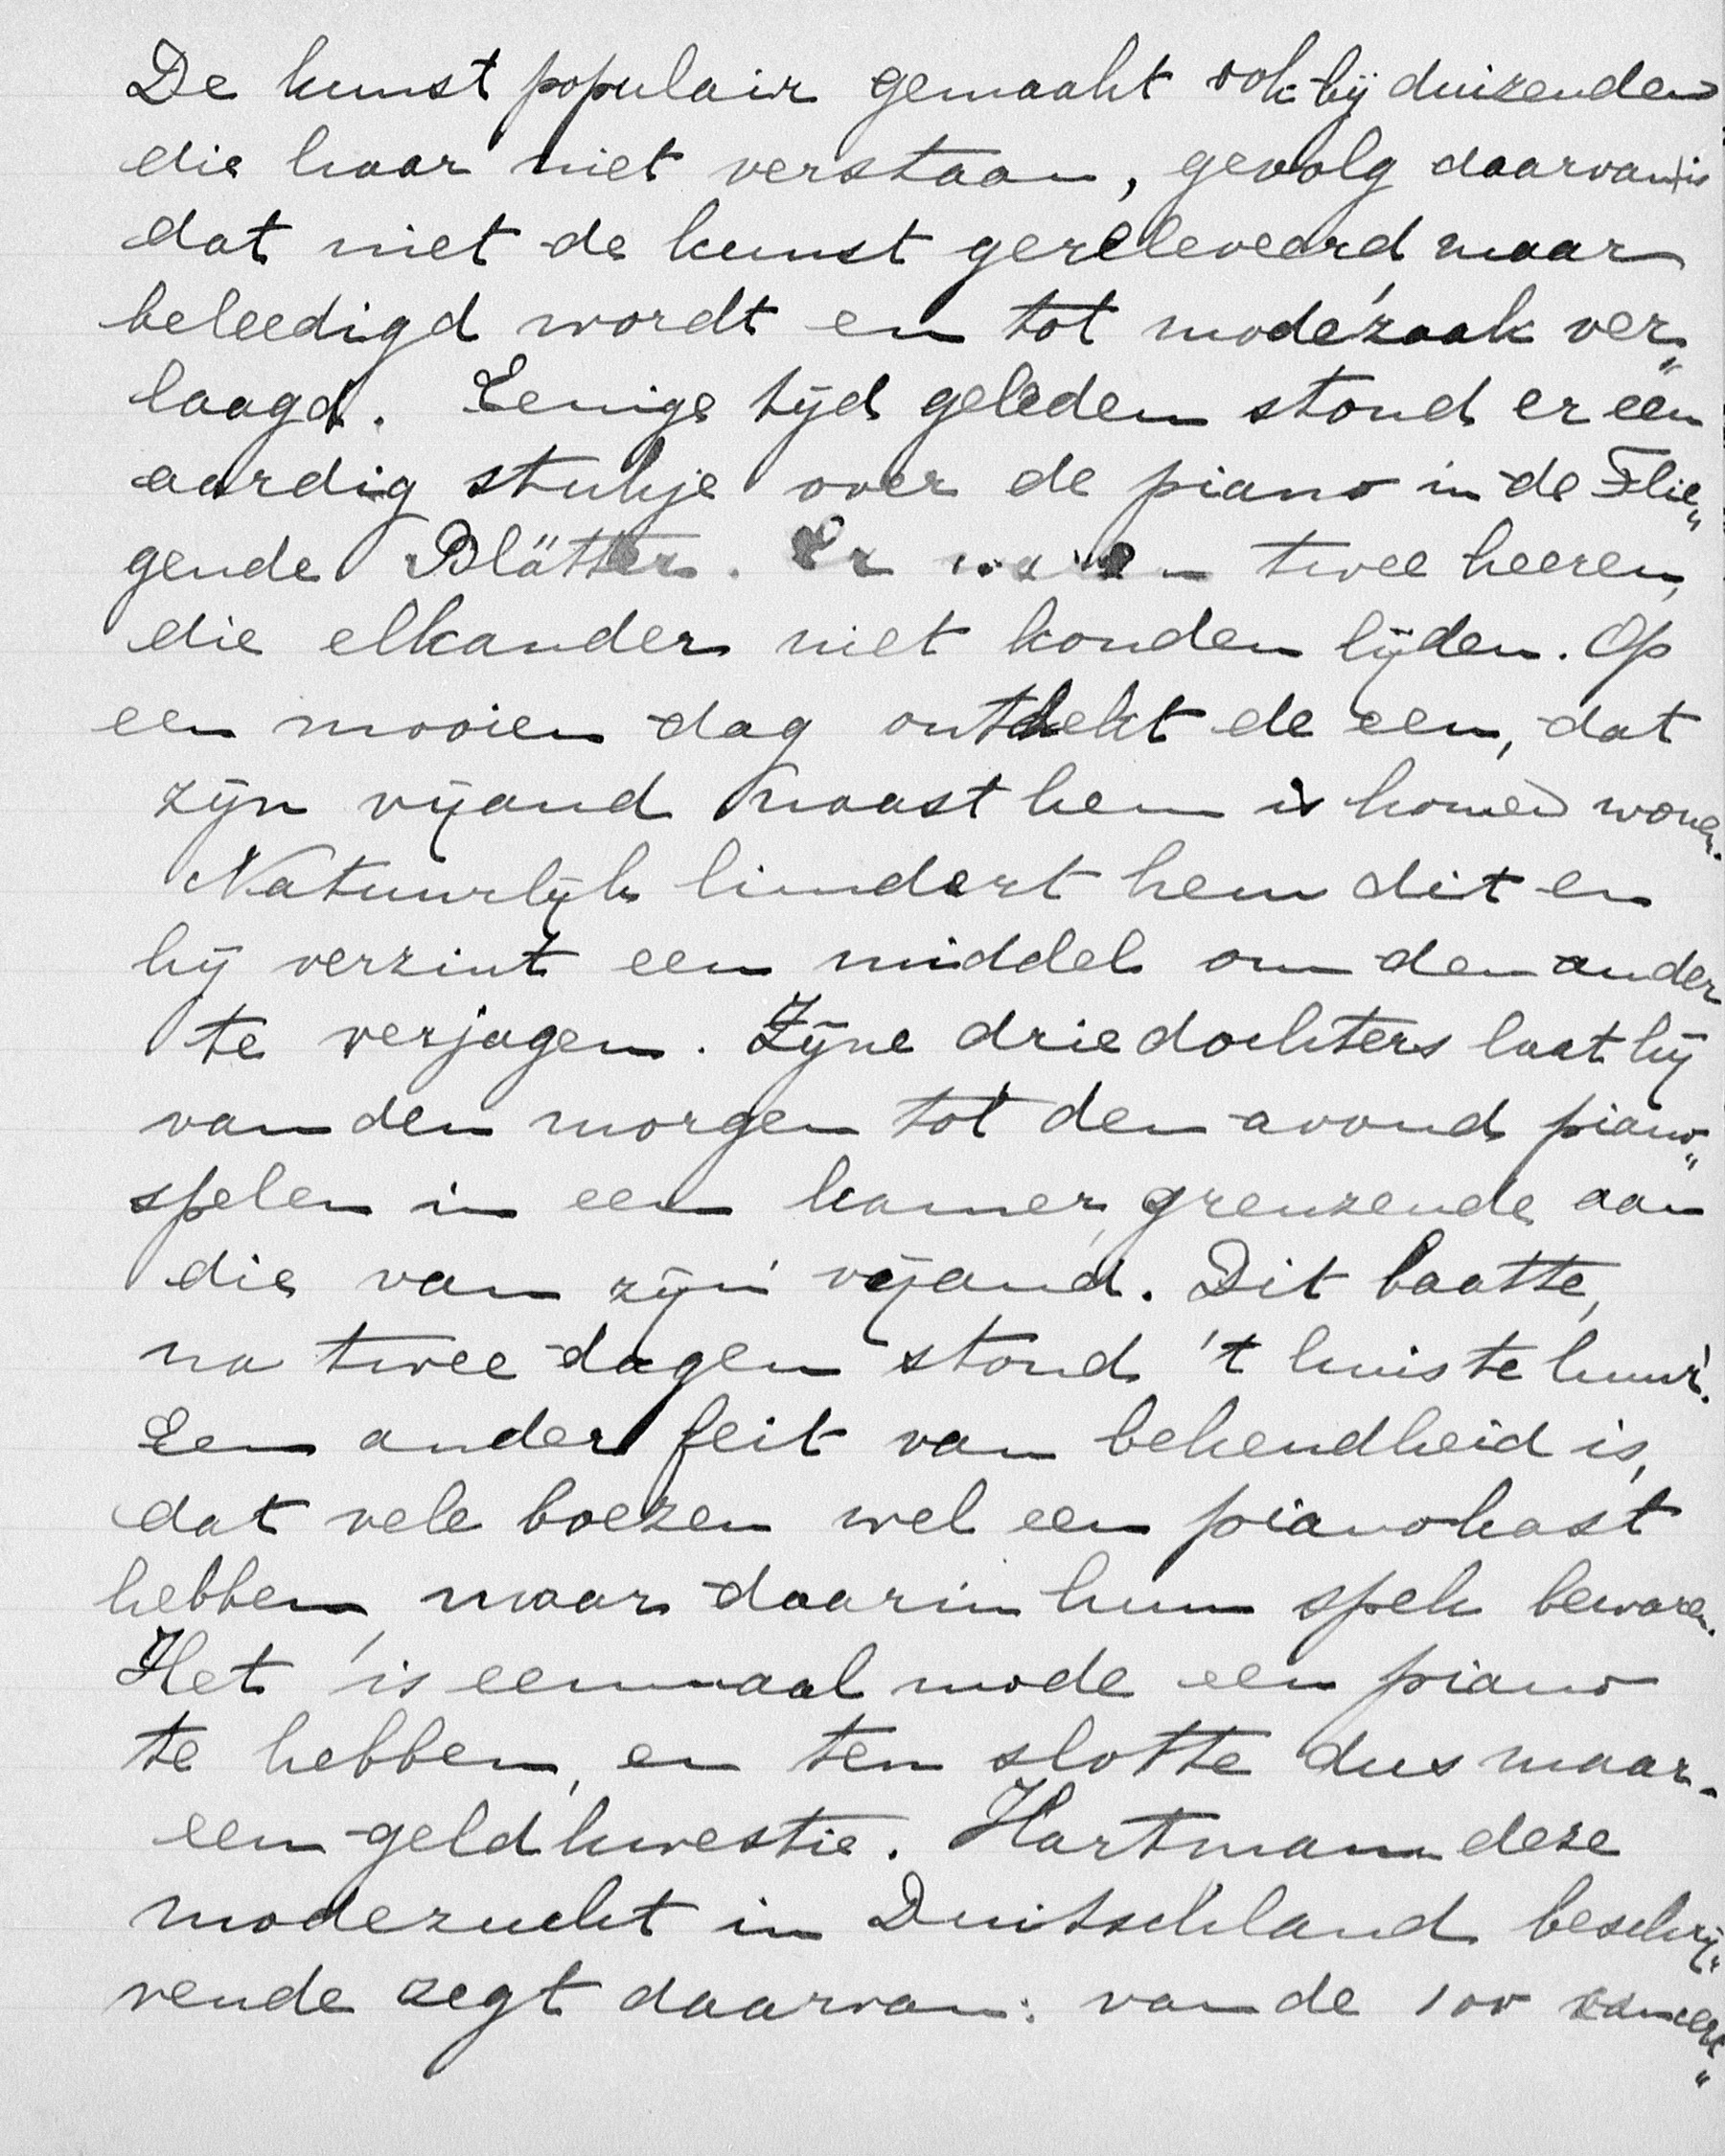 De kunst populair gemaakt ook bij duizenden
die haar niet verstaan, gevolg daarvan is
dat niet de kunst gereleveerd, maar
beleedigd wordt en tot modezaak ver„
laagd. Eenige tijd geleden stond er een
aardig stukje over de piano in de Flie„
gende Blätter. Er waren twee heeren,
die elkander niet konden lijden. Op
een mooien dag ontdekt de een, dat
zijn vijand naast hem is komen wonen.
Natuurlijk hindert hem dit en
hij verzint een middel om den ander
te verjagen. Zijne drie dochters laat hij
van den morgen tot den avond piano„
spelen in een kamer, grenzende aan
die van zijn vijand. Dit baatte,
na twee dagen stond 't huis te huur.
Een ander feit van bekendheid is,
dat vele boeren wel een pianokast
hebben, maar daarin hun spek bewaren.
Het is eenmaal mode een piano
te hebben, en ten slotte dus maar
een geldkwestie. Hartmann deze
modezucht in Duitschland beschrij„
vende zegt daarvan: van de 100 concert„